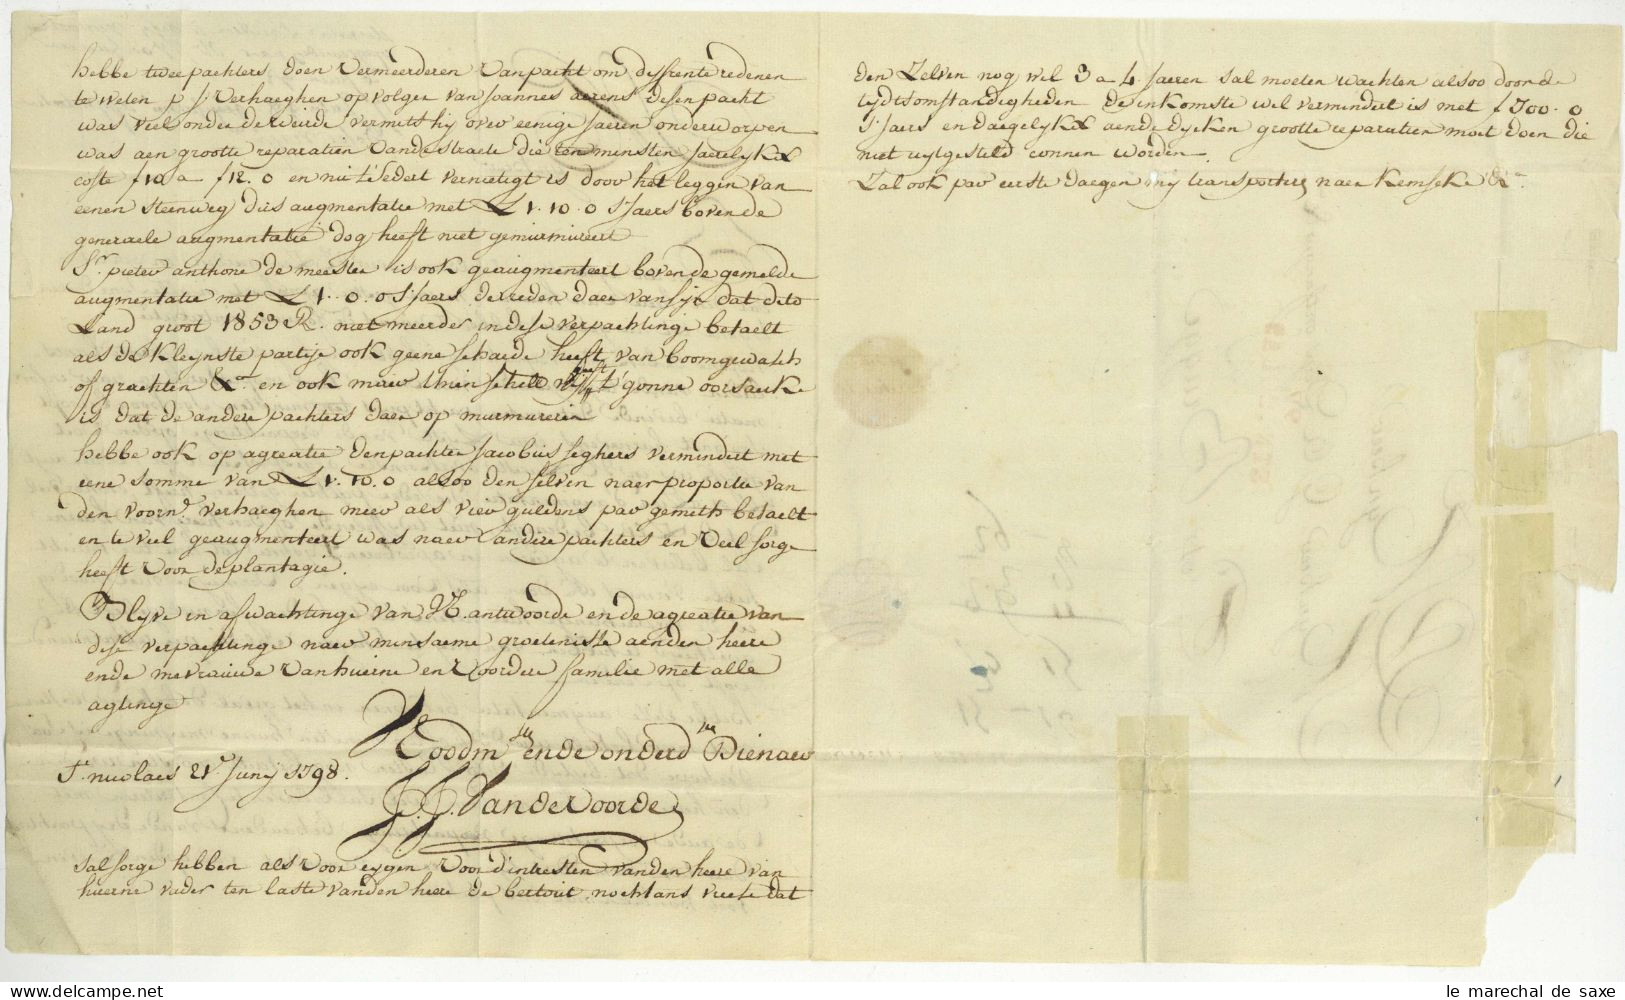 hebbe twee pachters doen vermeerderen van pacht om differente redenen
te weten p j verhaeghen op volger van joannes aerens desen pacht
was veel onder de weirde vermits hy over eenige jaeren onderworpen
was aen groote reparatien van de straete die ten minsten jaerelykx
coste f10 a f12.0 en nu t'eenemael vernietigt is door het leggen van
eenen steenweg dus augmentatie met £ 1.10.0 s'jaers boven de
generaele augmentatie dog heeft niet gemurmureert
Sr. pieter anthone de meester is ook geaugmenteert boven de gemelde
augmentatie met £ 1.0.0 s'jaers de reden daer van syt dat dito
Land groot 1853 R. niet meerder in dese verpachtinge betaelt
als de kleynste partije ook geene schaede heeft van boomgewasch
of grachten &a. en ook meer t'gonne oorsaeke
is dat de andere pachters daer op murmureren
hebbe ook op agreatie den pachter jacobus seghers vermindert met
eene somme van £ 1.10.0 alsoo den selven naer proportie van
den voorn. verhaeghen meer als vier guldens par gemeth betaelt
en te veel geaugmenteert was naer andere pachters en veel sorge
heeft voor de plantagie.
Blyve in afwachtinge van antwoorde en de agreatie van
dese verpachtinge naer minsaeme groetenisse aen den heere
ende mevrauwe van huerne en voordere familie met alle
agtinge
ootm ende onderd Dienaer
St. nicolaes 21e Junij 1798.
J. J. Van de Voorde
sal sorge hebben als voor eygen voor d'intresten van den heere van
huerne ten laste van den heere de bertout nochtans vreese dat
den zelven nog wel 3 a 4 jaeren sal moeten wachten alsoo door de
tydtsomstandigheden de inkomste wel vermindert is met f 700.0
s'jaers en daegelykx aen de dycken groote reparatien moet doen die
niet uytgesteld connen worden.
Zal ook par eerste daegen my transporteren naer Kemseke &a.
le marechal de saxe